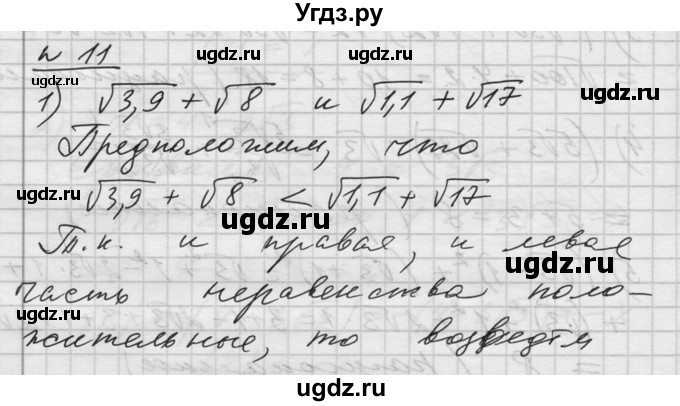 Угдз.ру
№ 11
1) √3,9 + √8 и √1,1 + √17
Предположим, что
√3,9 + √8 < √1,1 + √17
Т.к. и правая, и левая
часть неравенства поло-
жительные, то возведём
ugdz.ru
ugdz.ru
ugdz.ru
ugdz.ru
ugdz.ru
ugdz.ru
ugdz.ru
ugdz.ru
ugdz.ru
ugdz.ru
ugdz.ru